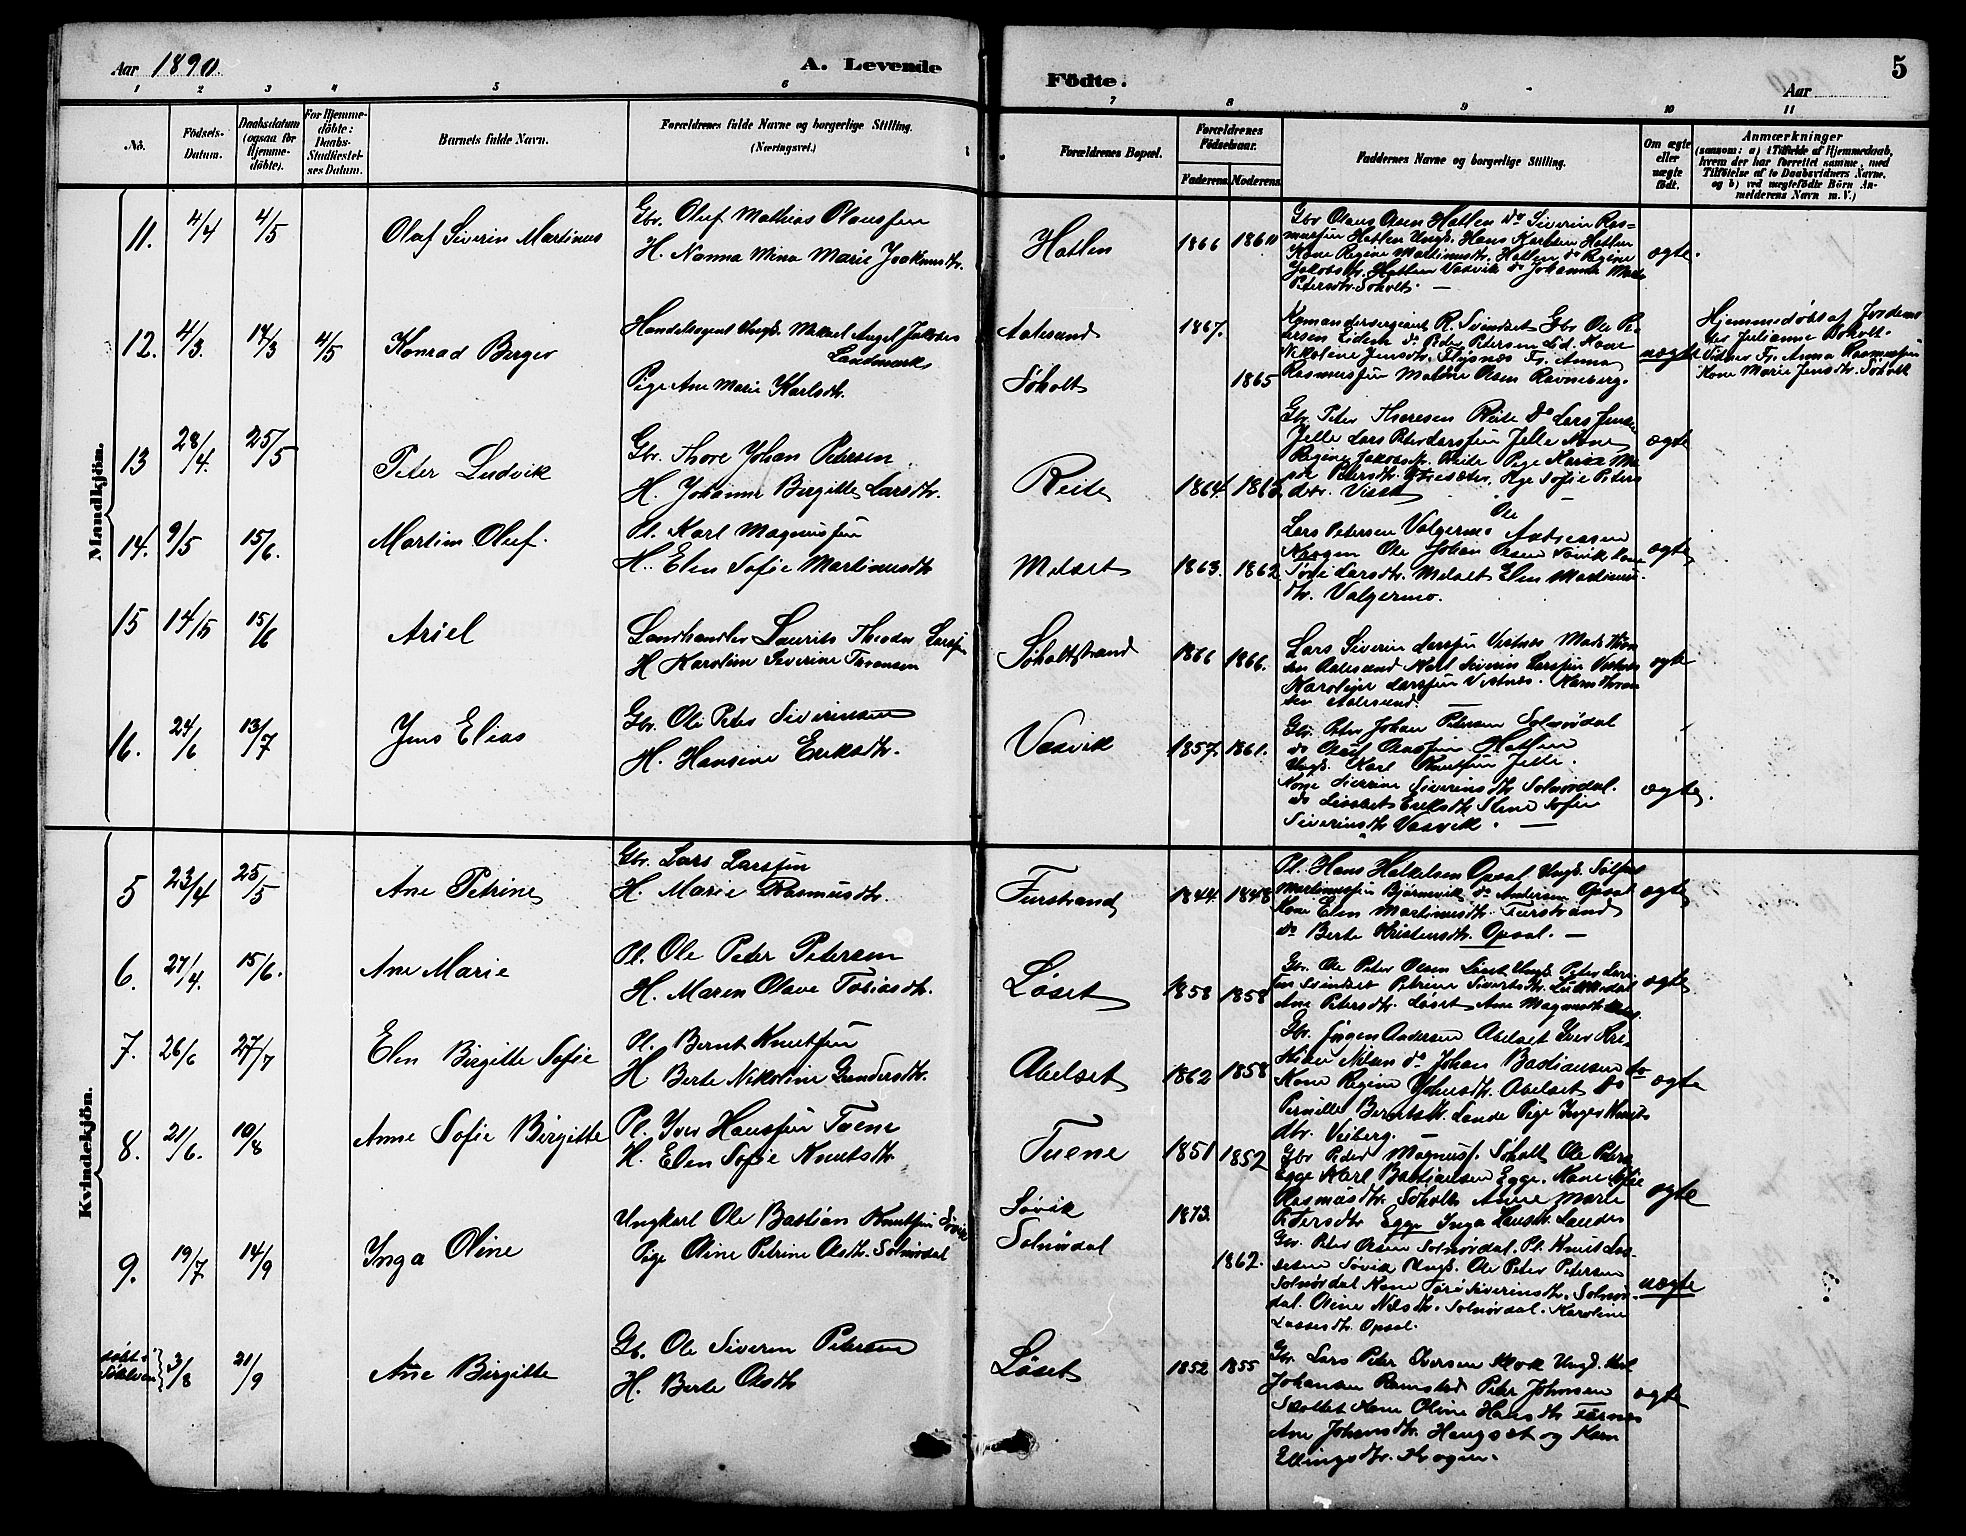 Aar 1890.
A. Levende
Födte.
Aar
5
1 2 3 4 5 6 7 8 9 10 11
No.
Födsels-Datum.
Daabsdatum (ogsaa for Hjemme-döbte).
For Hjemme-döbte: Daabs-Stadfæstel-ses Datum.
Barnets fulde Navn.
Forældrenes fulde Navne og borgerlige Stilling.
(Næringsvei.)
Forældrenes Bopæl.
Forældrenes Födselsaar.
Faderens. Moderens.
Faddernes Navne og borgerlige Stilling.
Om ægte eller uægte födt.
Anmærkninger
(saasom: a) i Tilfælde af Hjemmedaab,
hvem der har forrettet samme, med
Tilföielse af to Daabsvidners Navne,
og b) ved uægtefödte Börn An-
melderens Navn m. V.)
Mandkjön.
11. 4/4 4/5 Olaf Siverin Martinus
Gbr. Oluf Mathias Olaussen
H. Nanna Mina Marie Joakimsdtr.
Hatlen 1866 1860
Gbr Olaus Olsen Hatlen do Siverin Ras-
mussen Hatlen Ungk. Hans Karlsen Hatlen
Kone Regine Martinusdtr. Hatlen do Regine
Jakobsdtr. Hatlen Vasvik do Johanna
Petersdtr. Søholt. —
ægte.
12. 4/3. 14/3 4/5 Konrad Birger
Handelsagent Ungk. Mikael Angel Jakobsen
Landmark
Pige Ane Marie Karlsdtr.
Aalesund 1867.
Søholt 1865
Komandersergeant R. Svindset Gbr Ole Pe-
tersen Lid do Peder Petersen Lid. Kone
Nikoline Jensdtr. Flisnes Fr. Anna
Rasmussen Olsen Ravneberg.
uægte
Hjemmedøbt af Jordemo-
der Julianne Søholt.
Vidner Fr. Anna Rasmussen
Kone Marie Jensdtr. Søholt
13 28/4. 25/5 Peter Ludvik
Gbr. Thore Johan Petersen
H. Johanne Birgitte Larsdtr.
Reite 1864. 1865.
Gbr. Peter Thoresen Reite do Lars Jensen
Jelle Lars Peter Larssen Jelle Kone
Regine Jakobsdtr. Reite Pige Karen
Petersdtr. Pige Sofie Peters
dtr.
ægte
14. 9/5 15/6. Martin Oluf.
Pl. Karl Magnussen
H. Elen Sofie Martinusdtr
Melset 1863. 1862
Lars Petersen Valgermo Ole Andreasen
Krogen Ole Johan Olsen Søvik Kone
Larsdtr. Melset Elen Martinus-
dtr. Valgermo.
ægte
15 14/5 15/6 Ariel
Landhandler Laurits Theodor Larssen
H Karoline Severine Torensen
Søholtstrand 1866 1866.
Lars Siverin Larssen Vestnes Mads
Aalesund Karl Severin Larssen Vestnes
Karoline Larssen Vestnes.
Aalesund. —
ægte
16. 24/6 13/7 Jens Elias
Gbr. Ole Peter Siverinsen
H. Hansine Eriksdtr.
Vasvik 1857. 1861.
Gbr. Peter Johan Petersen Solnørdal
do Oluf Hatlen
Ungk. Karl Knutsen Jelle.
Kone Siverine Siverinsdtr Solnørdal.
do Lisabet Eriksdtr Stene Sofie
Siverinsdtr Vasvik. —
ægte.
Kvindekjön.
5 23/4 25/5 Ane Petrine
Gbr. Lars Larssen
H. Marie Rasmusdtr.
Furstrand 1844. 1848
Pl. Hans Opsal Ungk.
Martinussen Bjørnevik do Andersen Opsal
Kone Elen Martinusdtr. Furstrand
do Berte Kristensdtr. Opsal. —
ægte
6. 27/4. 15/6. Ane Marie
Pl. Ole Peter Petersen
H. Maren Olave Tobiasdtr.
Løset 1858 1858
Gbr. Ole Peter Olsen Løset Ungk. Peter Lars-
sen Svindset Petrine Sivertsdtr.
Ane Petersdtr. Løset Ane Magnusdtr.
ægte
7. 26/6 27/7 Elen Birgitte Sofie
Pl. Bernt Knutsen
H Berte Nikoline Gundersdtr.
Abelset 1862 1858
Gbr. Jørgen Andersen Abelset Iver Kri-
Nilsen do Johan Bastiansen do
Kone Regine Johnsdtr. Abelset do
Pernille Berntsdtr. Lande Pige Inger Knuts
dtr. Viberg. —
ægte
8. 21/6. 10/8 Anne Sofie Birgitte
Pl. Iver Hanssen Tuene
H. Elen Sofie Knutsdtr
Tuene 1851 1852
Gbr Peder Magnuss. Søholt Ole Peters
Egge Karl Bastiansen Egge. Kone Sofie
Rasmusdtr. Søholt Anne Marie
Petersdtr Egge Inga Hansdtr. Lande
ægte
9. 19/7 14/9 Inga Oline
Ungkarl Ole Bastian Knutsen Søvik
Pige Oline Petrine Olsdtr. Solnørdal
Søvik 1873.
Solnørdal 1862.
Gbr. Peter Olsen Solnørdal. Pl. Knut Las-
sesen Søvik Ungk. Ole Peter Petersen
Solnørdal Kone Siverinsdtr. Solnør-
dal. Oline Nilsdtr. Solnørdal. Karoline
Lassesdtr. Opsal.
uægte
døbt i
3/8 21/9 Ane Birgitte
Gb. Ole Siverin Petersen
H. Berte Olsdtr
Løset 1852 1855
Gbr. Lars Peter Iversen Krok Ungk. Karl
Johansen Ramstad Peter Johnsen
Kone Oline Hansdtr
Ane Johansdtr. Haugset og Karn
Ellingsdtr. Krogen.
ægte